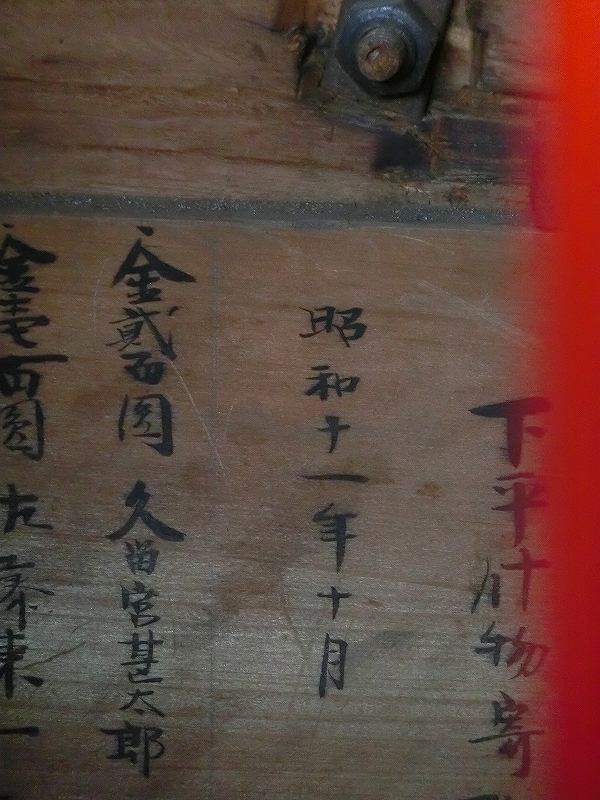 下平什物寄
昭和十一年十月
金貳百圓 久留宮甚太郎
金壱百圓 左藤東一